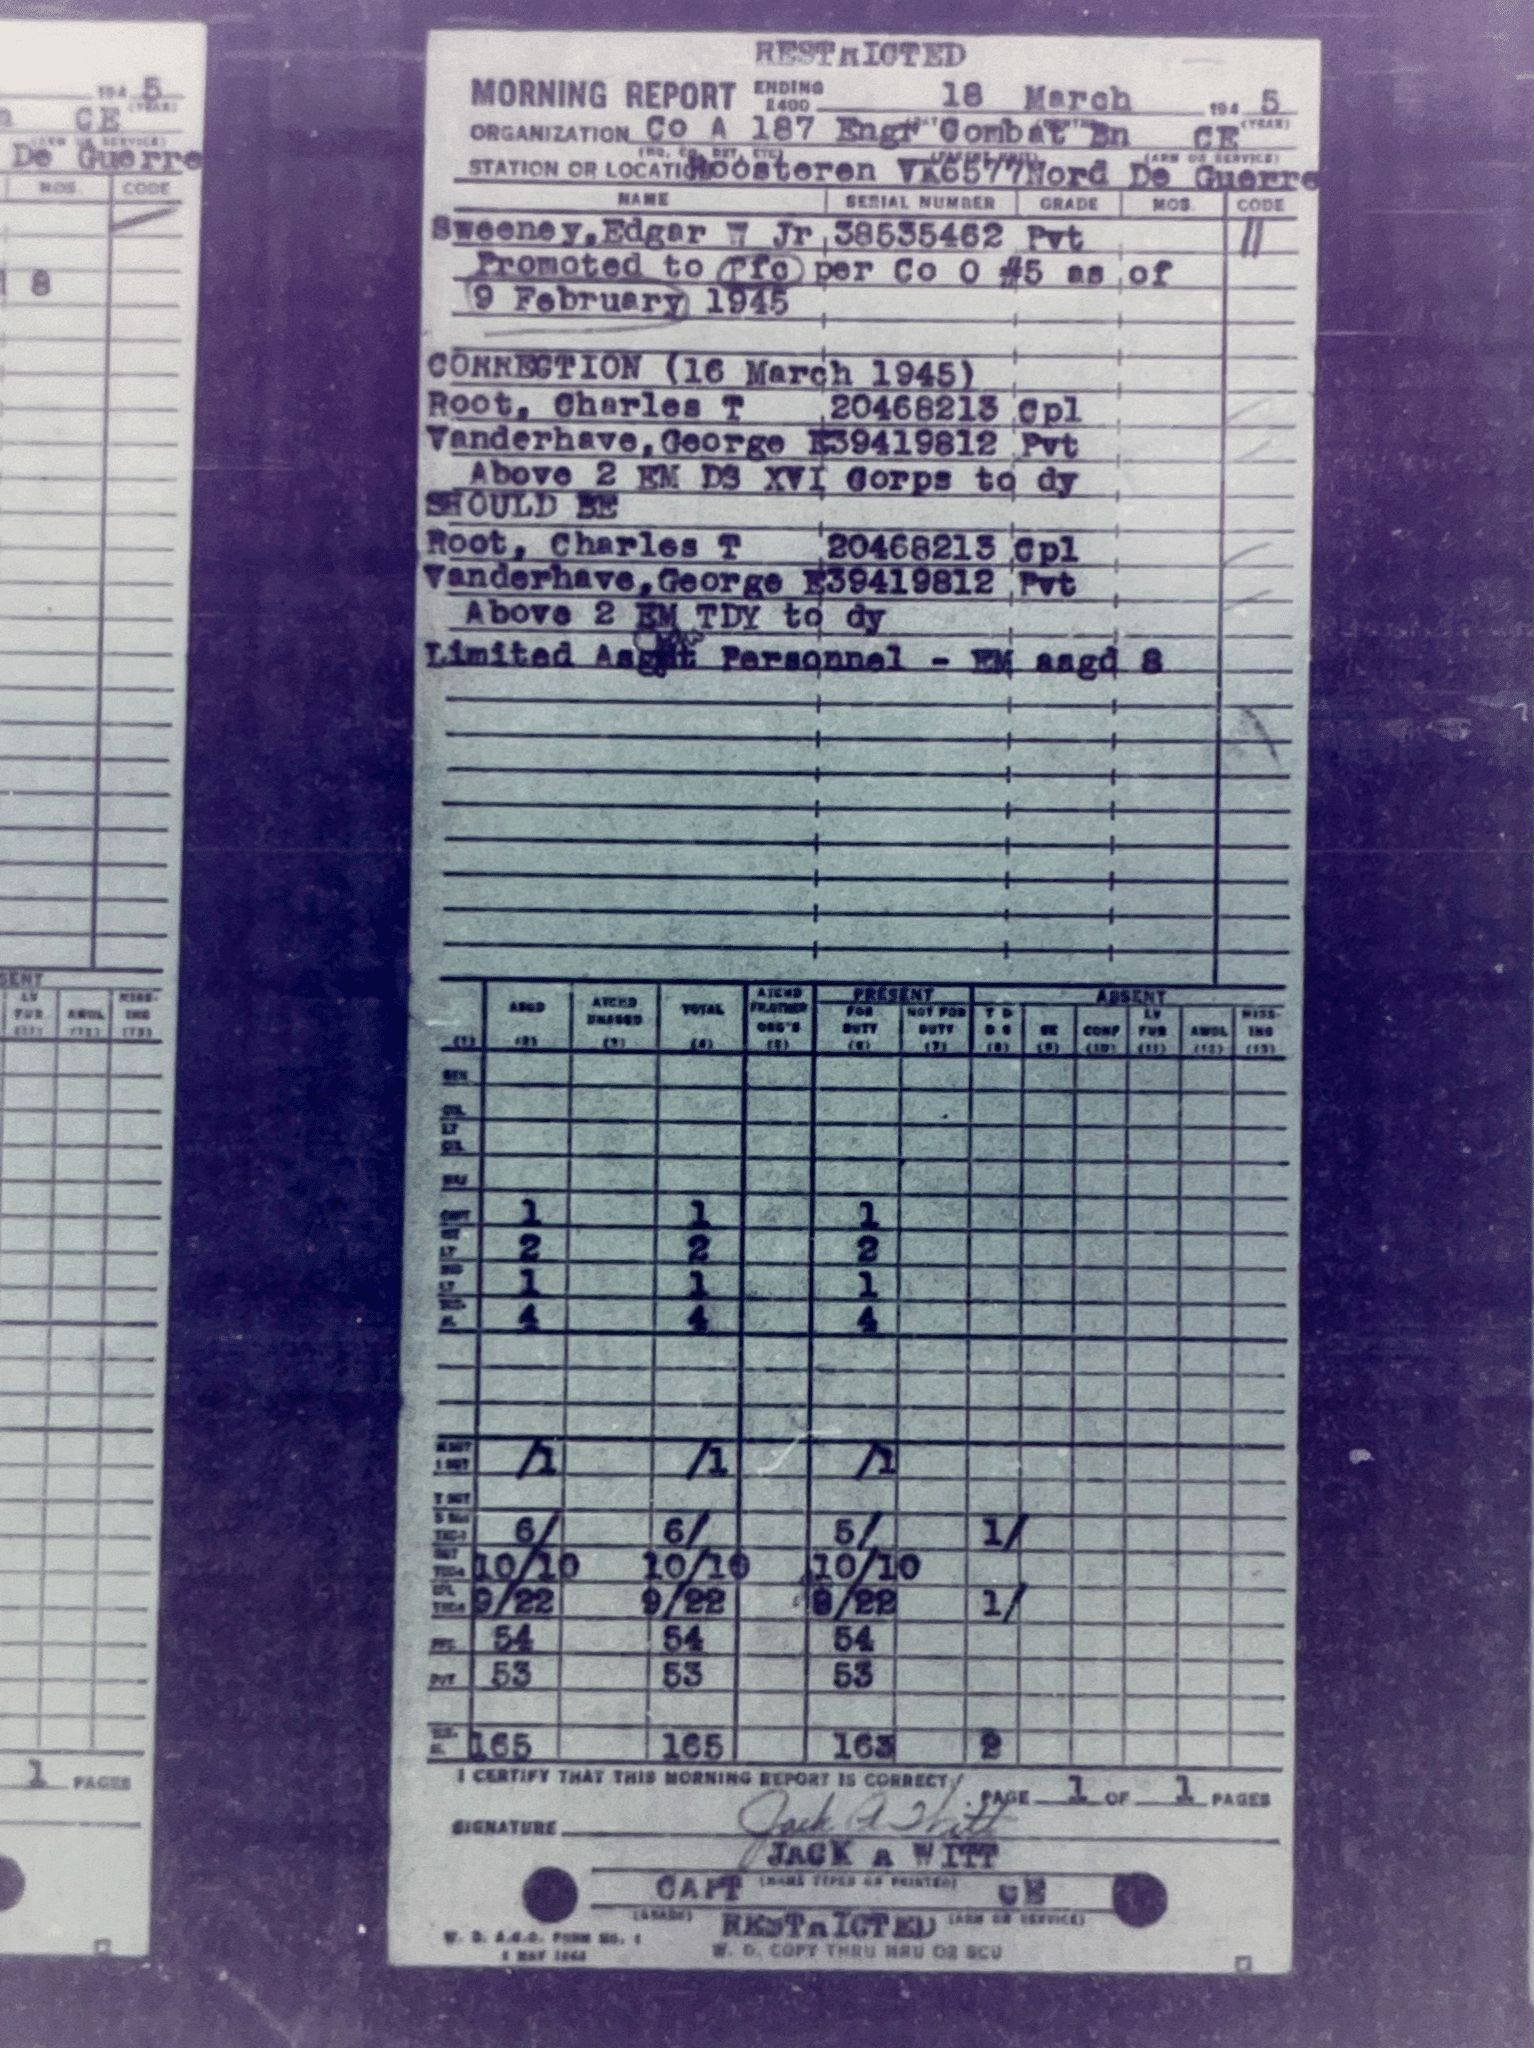 194 5
(YEAR)
CE
De Guerre
MOS. CODE
8
LV FUR (11) AWOL (12) MISS- ING (13)
1 PAGES
RESTRICTED
MORNING REPORT ENDING 2400 18 March 194 5
(YEAR)
ORGANIZATION Co A 187 Engr Combat Bn CE
(ARM OR SERVICE)
STATION OR LOCATION Roosteren VK6577Nord De Guerre
NAME SERIAL NUMBER GRADE MOS. CODE
Sweeney,Edgar W Jr 38535462 Pvt 11
Promoted to Pfc per Co O #5 as of
9 February 1945
CORRECTION (16 March 1945)
Root, Charles T 20468213 Cpl
Vanderhave,George E39419812 Pvt
Above 2 EM DS XVI Corps to dy
SHOULD BE
Root, Charles T 20468213 Cpl
Vanderhave,George E39419812 Pvt
Above 2 EM TDY to dy
Limited Asgmt Personnel - EM asgd 8
PRESENT ABSENT
(1) ASGD (2) ATCHD UNASGD (3) TOTAL (4) ATCHD FR.OTHER ORG'S (5) FOR DUTY (6) NOT FOR DUTY (7) T D D S (8) SK (9) CONF (10) LV FUR (11) AWOL (12) MISS- ING (13)
GEN
COL
LT COL
MAJ
CAPT 1 1 1
1ST LT 2 2 2
2ND LT 1 1 1
4 4 4
M SGT 1 SGT /1 /1 /1
T SGT
S SGT TEC-3 6/ 6/ 5/ 1/
SGT TEC-4 10/10 10/10 10/10
CPL TEC-5 9/22 9/22 8/22 1/
PFC 54 54 54
PVT 53 53 53
165 165 163 2
I CERTIFY THAT THIS MORNING REPORT IS CORRECT
PAGE 1 OF 1 PAGES
SIGNATURE Jack A Witt
JACK A WITT
(NAME TYPED OR PRINTED)
CAPT CE
(GRADE) (ARM OR SERVICE)
RESTRICTED
W. D. A.G.O. FORM NO. 1
W. D. COPY THRU MRU OR SCU